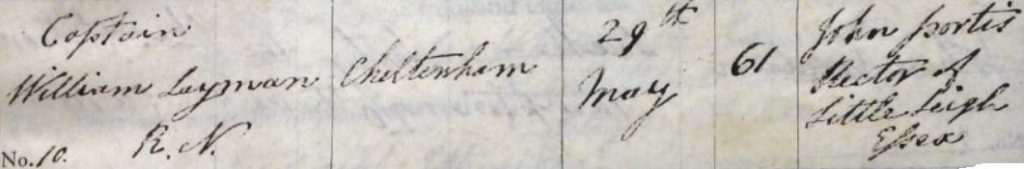 Captain
William Layman
R. N.
No. 10.
Cheltenham
29th
May
61
John Portis
Rector of
Little Leigh
Essex